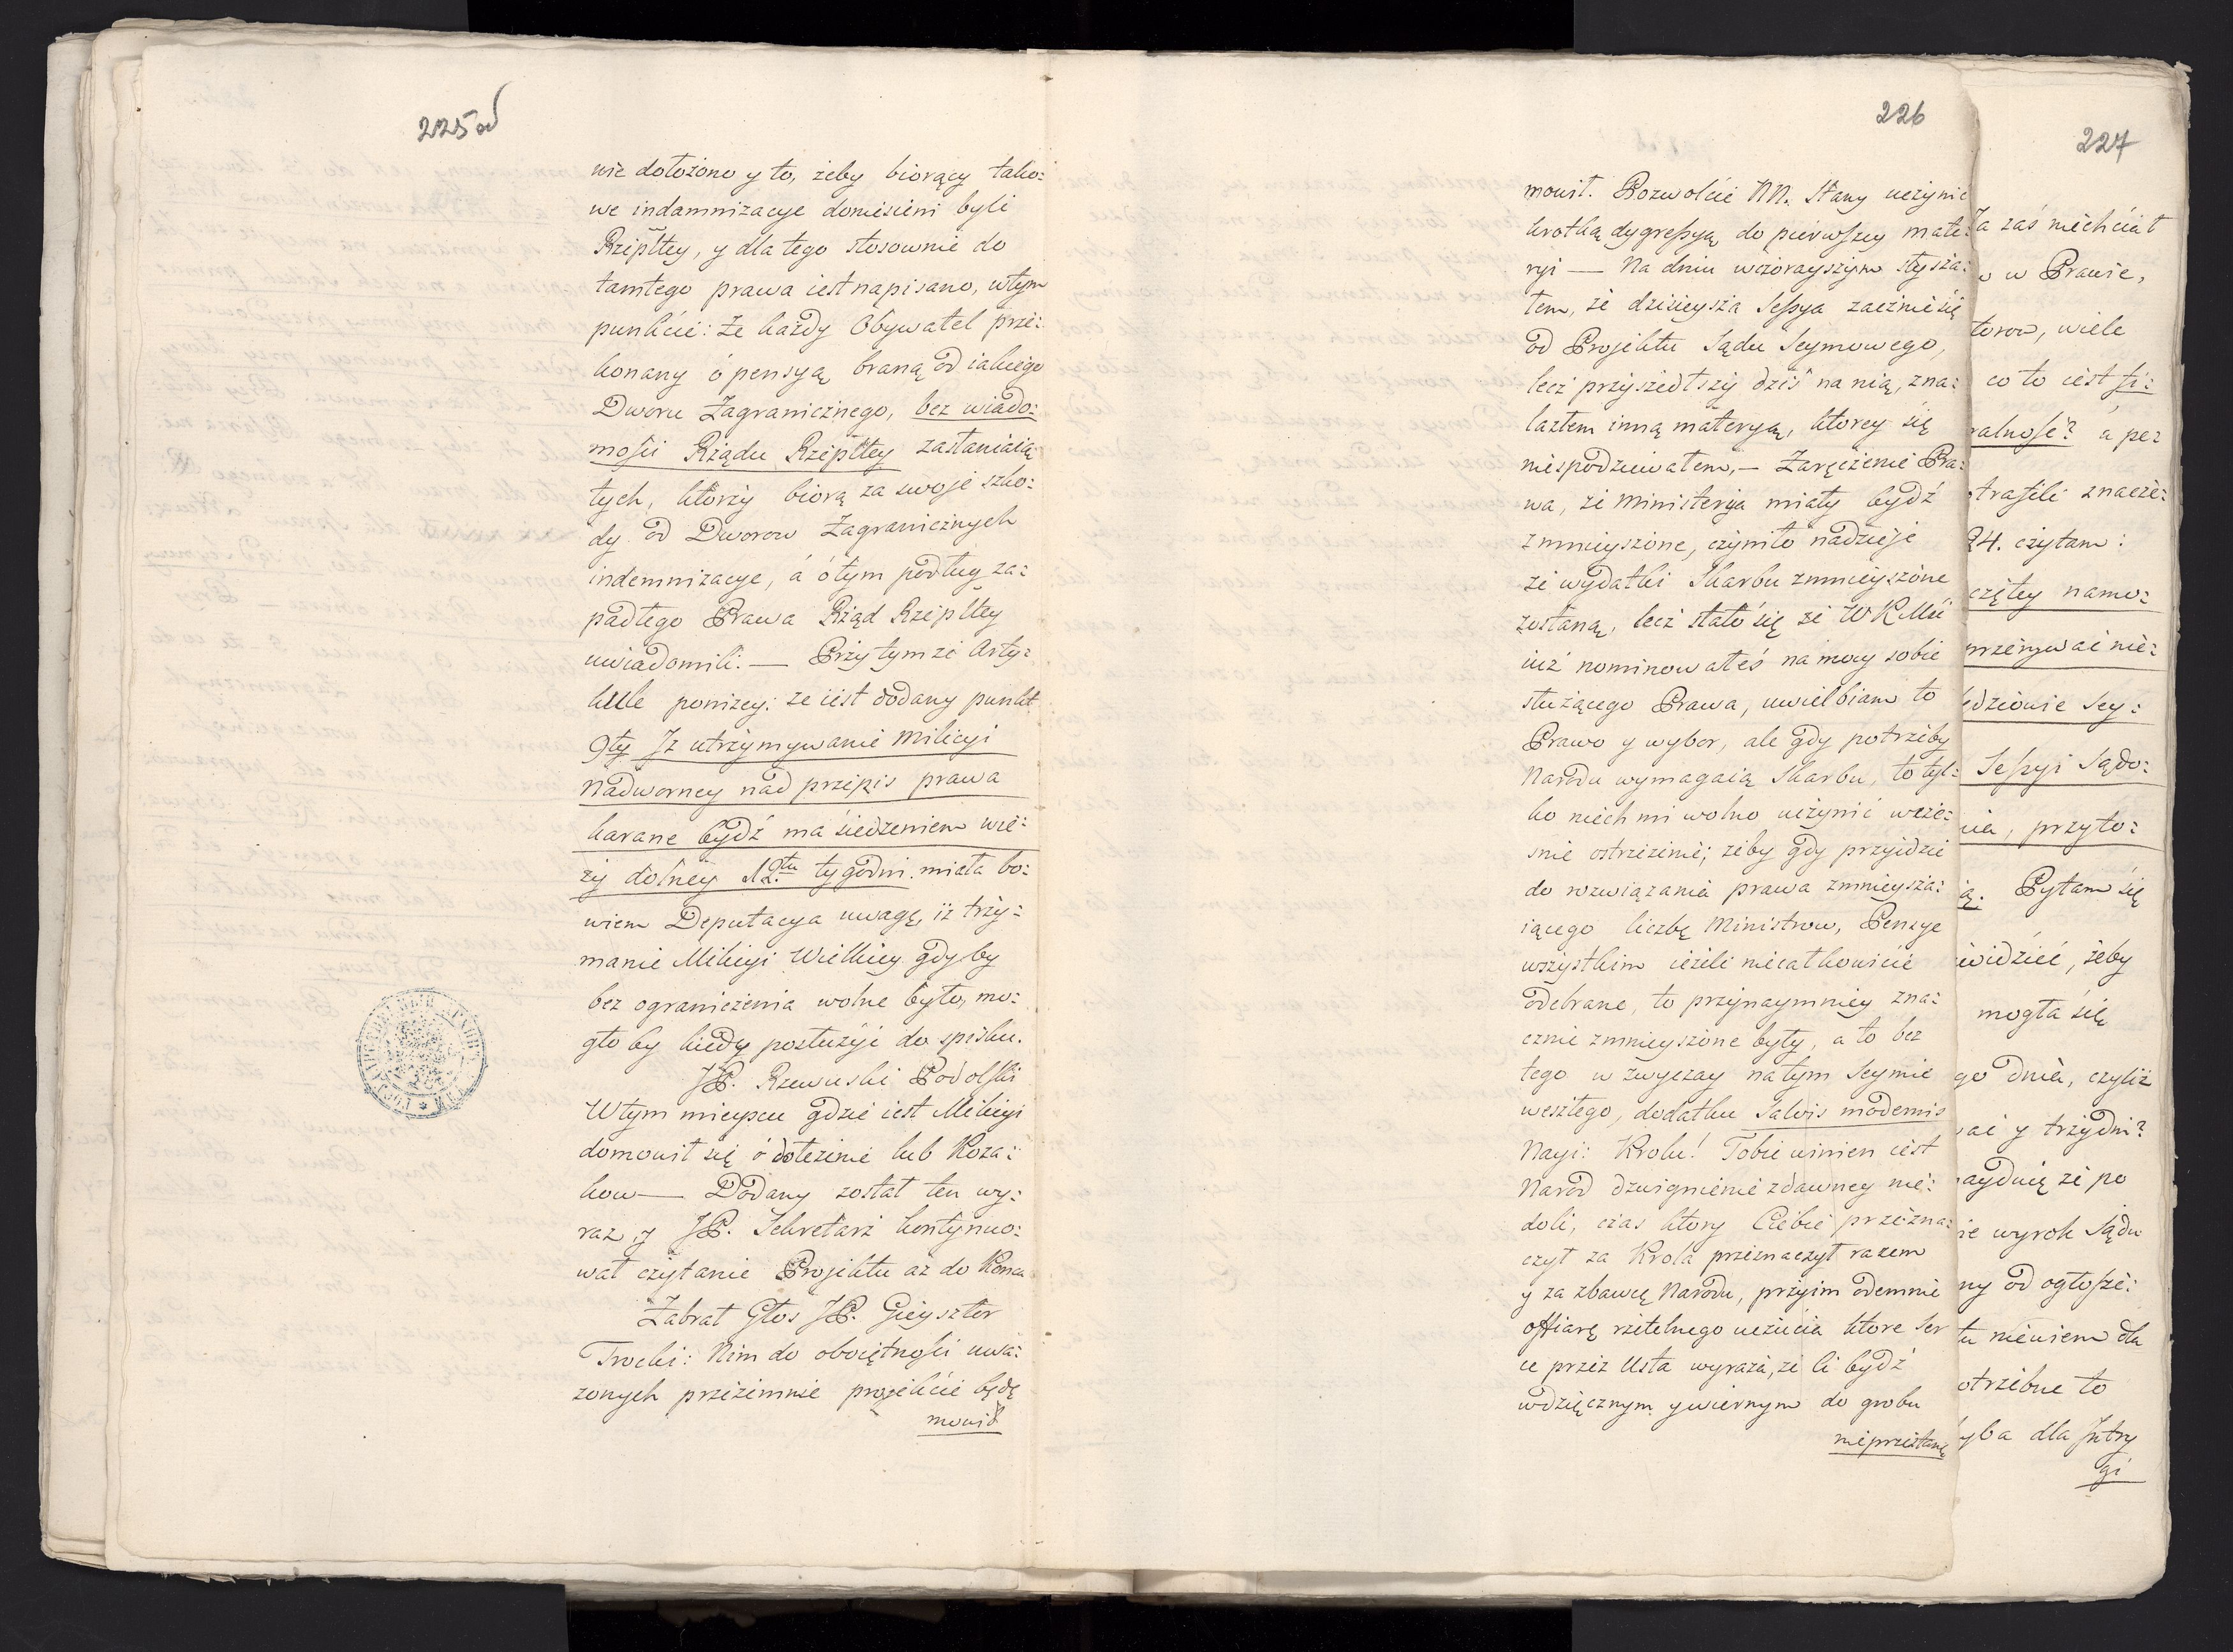 225 od
wie dołożono y to, żeby biorący tako:
we indamnizacye doniesieni byli
Rzepltey, y dla tego stosownie do
tamtego prawa iest napisano, w tym
punkcie: Że każdy Obywatel prze:
konany ó pensyą braną od iakiego
Dworu Zagranicznego, bez wiado:
mości Rządu Rzepltey zastaniaią
tych, ktorzy biorą za swoje szko:
dy od Dworow Zagranicznych
indemnizacye, á ó tym podług za:
padłego Prawa Rząd Rzepltey
uwiadomili. — Przy tym że Arty:
kule poniżey: że iest dodany punkt
9ty Jż utrzymywanie Milicyi
Nadworney nad przepis prawa
karane bydź ma siedzeniem wie:
ży dolney 12.stu tygodni. miała bo:
wiem Deputacya uwagę, iż trzy:
manie Milicyi Wielkiey gdyby
bez ograniczenia wolne było, mo:
gło by kiedy posłużyć do spisku.
JP. Rzewuski Podolski
W tym mieyscu gdzie iest Milicyi
domowił się ó dołożenie lub Koza:
kow — Dodany został ten wy:
raz y JP. Sekretarz kontynuo:
wał czytanie Projektu aż do Konca
Zabrał Głos JP. Gieysztor
Trocki: Nim do obojętności uwa:
żonych przezemnie projekcie będę
mowił
226
mowił. Pozwolcie NN. Stany uczynić
krotką dygressyą do pierwszey mate:
ryi — Na dniu wczorayszym słysza:
łem, że dzisieysza Sessya zacznie się
od Projektu Sądu Seymowego,
lecz przyszedłszy dziś na nią, zna:
lazłem inną materyą, ktorey się
niespodziewałem, — Zaręczenie Pra:
wa, że Ministerya miały bydź
zmnieyszone, czyniło nadzieje
że wydatki Skarbu zmnieyszone
zostaną, lecz stało się że WKMść
iuż nominowałeś na mocy sobie
służącego Prawa, uwielbiam to
Prawo y wybor, ale gdy potrzeby
Narodu wymagaią Skarbu, to tyl:
ko niech mi wolno uczynić wcze:
snie ostrzeżenie; żeby gdy przyidzie
do rozwiązania prawa zmnieysza:
iącego liczbę Ministrow, Pensye
wszystkim ieżeli niecałkowicie
odebrane, to przynaymniey zna:
cznie zmnieyszone były, a to bez
tego w zwyczay na tym Seymie
weszłego, dodatku Salvis modernis
Nayi: Krolu! Tobie winien iest
Narod dzwignienie z dawney nie:
doli, czas ktory Ciebie przezna:
czył za Krola przeznaczył razem
y za zbawcę Narodu, przyim odemnie
offiarę rzetelnego uczucia ktore Ser
ce przez Usta wyraża, że Ci bydź
wdzięcznym y wiernym do grobu
nieprzestanę
227
Ja zaś niechciał
w Prawie,
torow, wiele
co to iest fi:
ralność? á pe:
trafili znacze:
24. czytam:
czętey namo:
przerywać nie:
dzionie Sey:
Sessyi Sądo:
nia, przyto:
Pytam się
widzieć, żeby
mogła się
go dnia, czyliż
wać y trzydni?
że po
wyrok Sądu
ny od ogłosze:
tu niewiem dla
otrzebne to
yba dla Jntry
gi